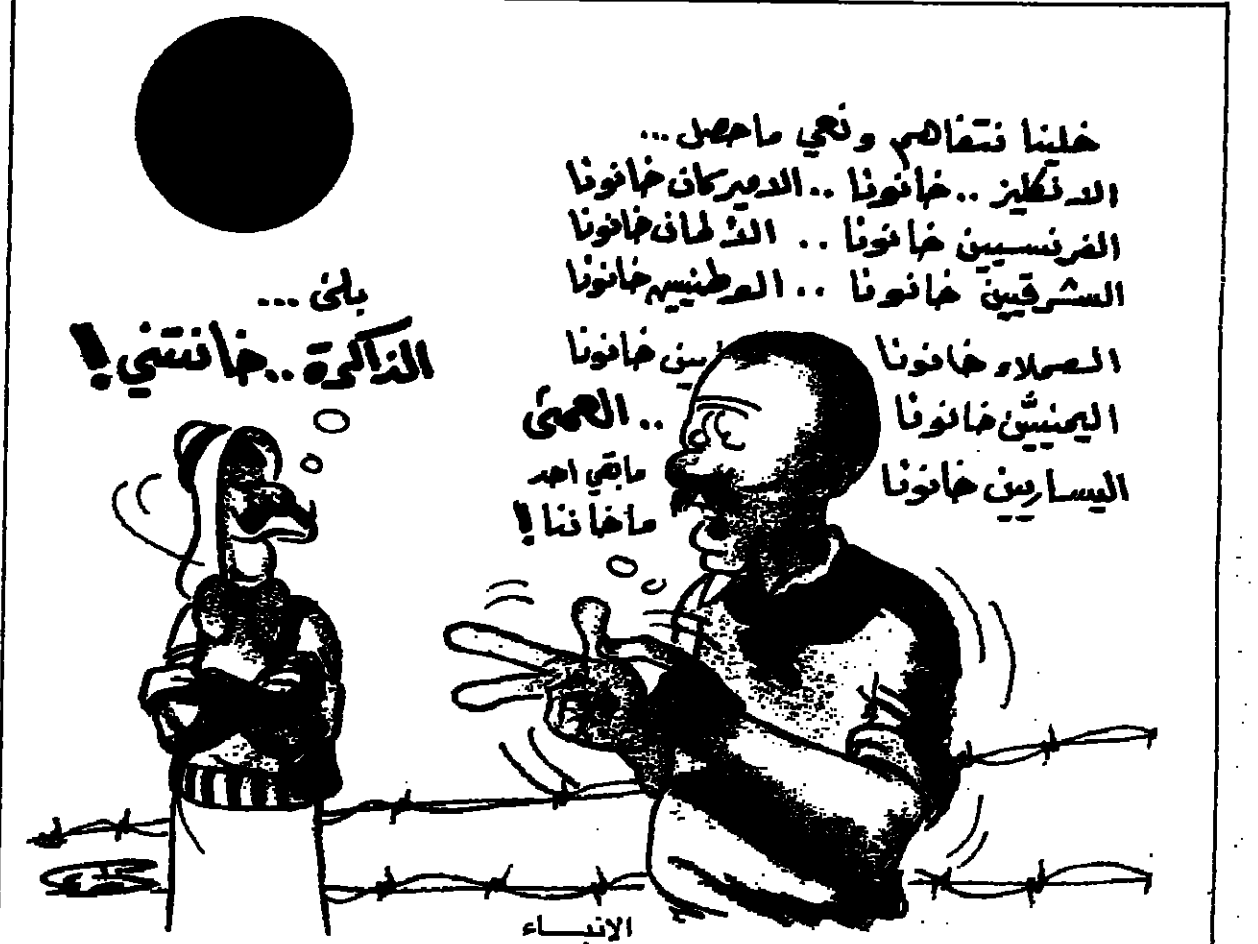 خلينا نتفاهم ونعي ماحصل...
الانكليز .. خانونا .. الاميركان خانونا
الفرنسيين خانونا .. الألمان خانونا
الشرقيين خانونا .. الوطنيين خانونا
العملاء خانونا خانونا
اليمنيين خانونا .. العمى
اليساريين خانونا مابقي احد
ماخاننا !!
بلى ...
الذاكرة .. خانتني !!
الانبــاء